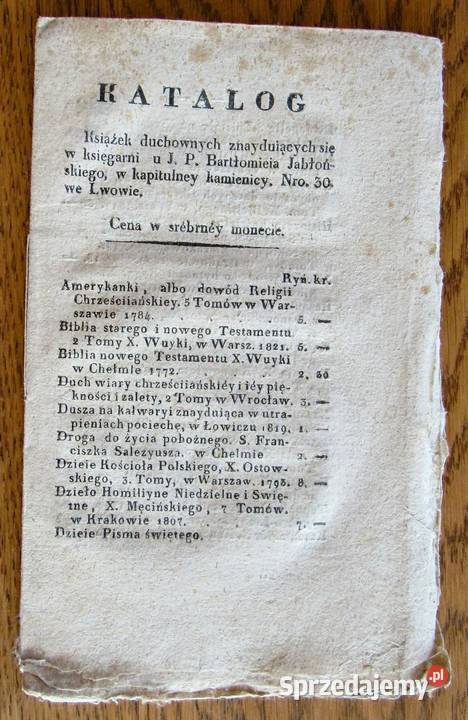 KATALOG
Książek duchownych znayduiących się
w księgarni u J. P. Bartłomieia Jabłoń-
skiego, w kapitulney kamienicy. Nro. 30.
we Lwowie.
Cena w srébrnéy monecie.
Ryń. kr.
Amerykanki, albo dowód Religii
Chrześciiańskiey. 5 Tomów w War-
szawie 1784. . . . 5. —
Biblia starego i nowego Testamentu
2 Tomy X. Wuyki, w Warsz. 1821. 5. —
Biblia nowego Testamentu X. Wuyki
w Chełmie 1772. . . . 2, 30
Duch wiary chrześciiańskiéy i iéy pię-
kności i zalety, 2 Tomy w Wrocław. 3. —
Dusza na kalwaryi znayduiąca w utra-
pieniach pociechę, w Łowiczu 1819. 1. —
Droga do życia pobożnego. S. Fran-
ciszka Salezyusza. w Chełmie 2. —
Dzieie Kościoła Polskiego, X. Ostow-
skiego, 3. Tomy, w Warszaw. 1793. 8. —
Dzieło Homiliyne Niedzielne i Swię-
tne, X. Męcińskiego, 7 Tomów.
w Krakowie 1807. . . . 7. —
Dzieie Pisma świętego.
Sprzedajemy.pl